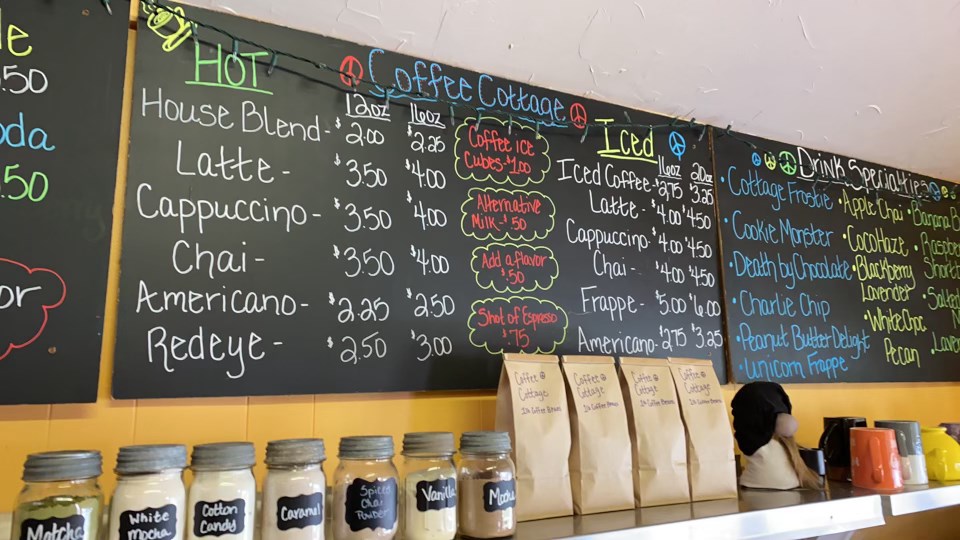 e
.50
oda
.50
or
HOT
Coffee Cottage
12oz 16oz
House Blend - $2.00 $2.25
Latte - $3.50 $4.00
Cappuccino - $3.50 $4.00
Chai - $3.50 $4.00
Americano - $2.25 $2.50
Redeye - $2.50 $3.00
Coffee ICE
Cubes-$1.00
Alternative
Milk-$.50
Add a flavor
$.50
Shot of Espresso
$.75
Iced
16oz 20oz
Iced Coffee-$2.75 $3.25
Latte - $4.00 $4.50
Cappuccino-$4.00 $4.50
Chai - $4.00 $4.50
Frappe - $5.00 $6.00
Americano-$2.75 $3.25
Drink Specialties
•Cottage Frostie
•Cookie Monster
•Death by Chocolate
•Charlie Chip
•Peanut Butter Delight
•Unicorn Frappe
•Apple Chai
•CocoHaze
•Blackberry
Lavender
•White Choc
Pecan
•Banana B
•Raspbe
Short
•Salted
•Lave
Coffee
Cottage
Coffee
Cottage
Coffee
Cottage
Coffee
Cottage
Matcha
White
Mocha
Cotton
Candy
Caramel
Spiced
Chai
Powder
Vanilla
Mocha